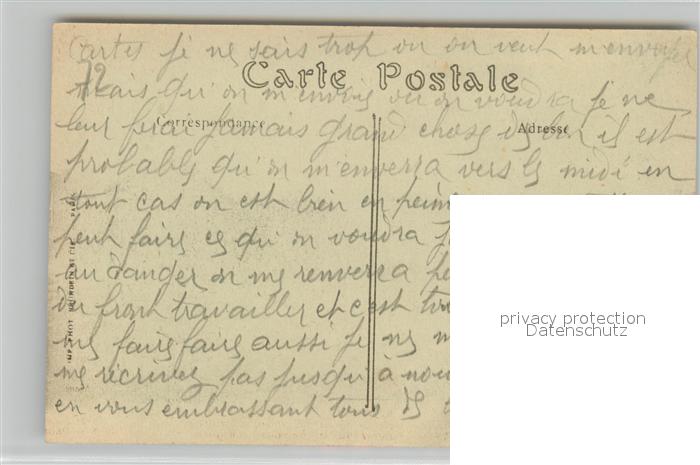 Cartes je ne sais trop ou on veut m'envoyer
12
Carte Postale
mais qu'on m'envoie ou on voudra je ne
Correspondance
Adresse
leur ferai jamais grand chose de bon il est
probable qu'on m'enverra vers le midi en
tout cas on est bien en peine
peut faire ce qu'on voudra
au danger on me renverra
du front travailler et c'est
me faire faire aussi je ne
me récrivez pas jusqu'à
en vous embrassant tous
IMP. PHOT.
PARIS
privacy protection
Datenschutz